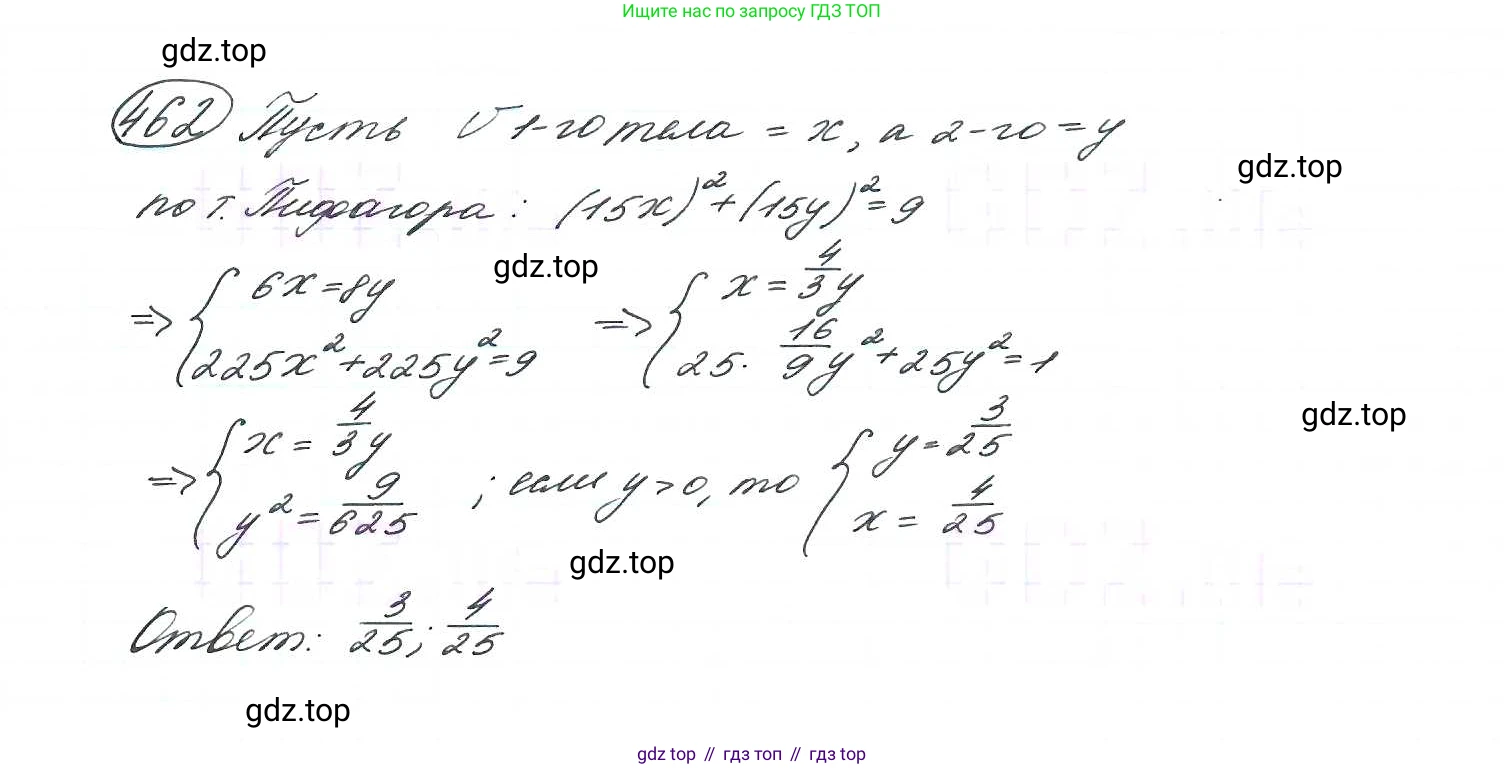 Ищите нас по запросу ГДЗ ТОП
gdz.top
462 Пусть V 1-го тела = x, а 2-го = y
gdz.top
по т. Пифагора: (15x)² + (15y)² = 9
gdz.top
=> { 6x = 8y => { x = 4/3 y
225x² + 225y² = 9 25 · 16/9 y² + 25y² = 1
gdz.top
=> { x = 4/3 y ; если y > 0, то { y = 3/25
y² = 9/625 x = 4/25
gdz.top
Ответ: 3/25; 4/25
gdz.top
gdz top // гдз топ // гдз top